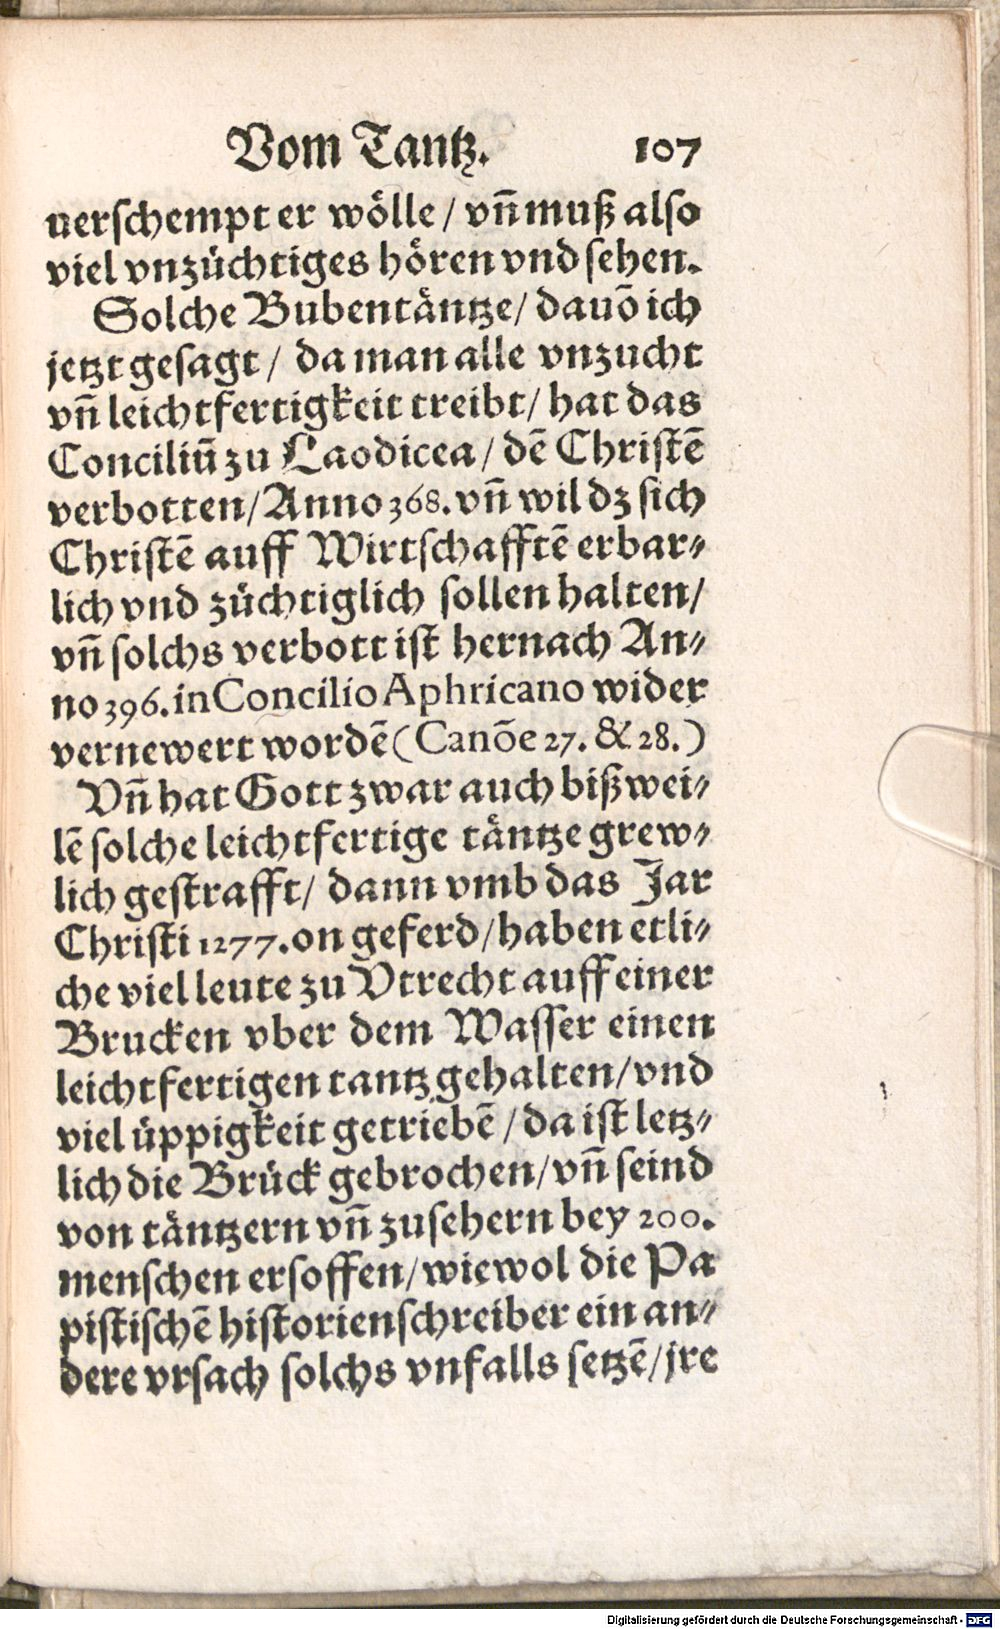 Vom Tantz. 107
uerschempt er wölle / vn̄ muß also
viel vnzüchtiges hören vnd sehen.
Solche Bubentäntze / dauō ich
jetzt gesagt / da man alle vnzucht
vn̄ leichtfertigkeit treibt / hat das
Conciliū zu Laodicea / dē Christē
verbotten / Anno 368. vn̄ wil dz sich
Christē auff Wirtschafftē erbar⸗
lich vnd züchtiglich sollen halten /
vn̄ solchs verbott ist hernach An⸗
no 396. in Concilio Aphricano wider
vernewert wordē (Canōe 27. & 28.)
Vn̄ hat Gott zwar auch bißwei⸗
lē solche leichtfertige täntze grew⸗
lich gestrafft / dann vmb das Jar
Christi 1277. on geferd / haben etli⸗
che viel leute zu Vtrecht auff einer
Brucken vber dem Wasser einen
leichtfertigen tantz gehalten / vnd
viel üppigkeit getriebē / da ist letz⸗
lich die Brück gebrochen / vn̄ seind
von täntzern vn̄ zusehern bey 200.
menschen ersoffen / wiewol die Pa
pistischē historienschreiber ein an⸗
dere vrsach solchs vnfalls setzē / jre
Digitalisierung gefördert durch die Deutsche Forschungsgemeinschaft - DFG